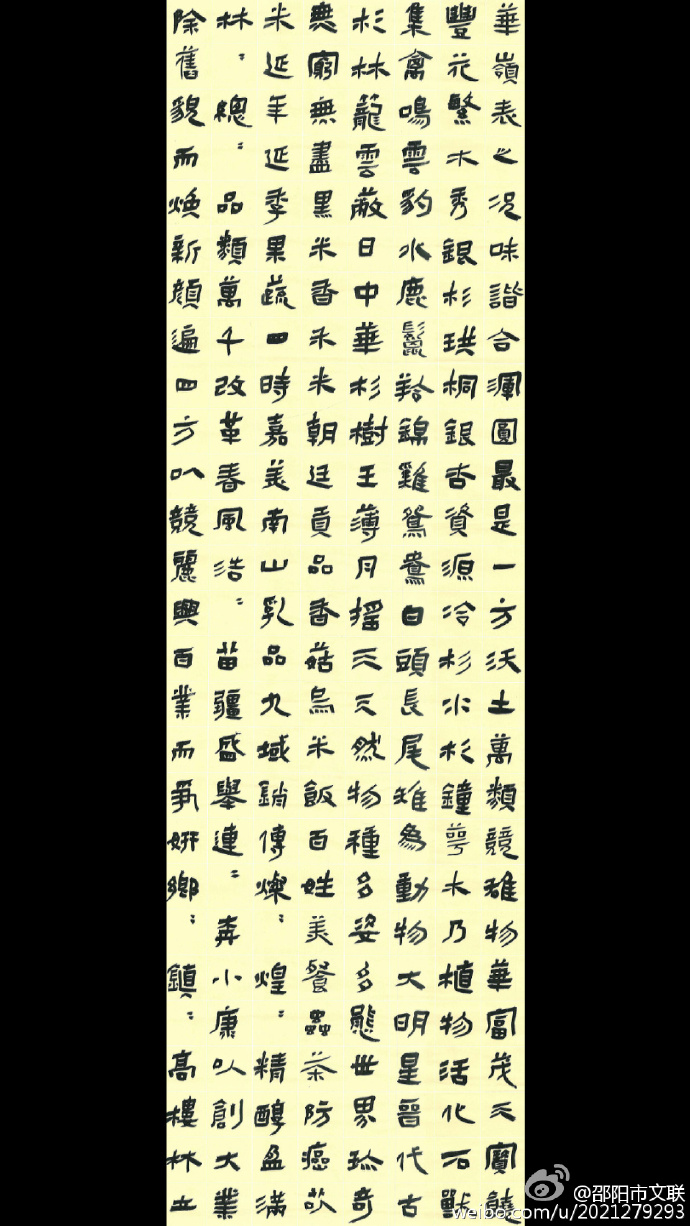 華嶺表之況味諧合渾圓最是一方沃土萬類競雄物華富茂天寶饒
豐元繁木秀銀杉珙桐銀杏資源冷杉水杉鐘萼木乃植物活化石獸
集禽鳴雲豹水鹿鬣羚錦雞鴛鴦白頭長尾雉為動物大明星晉代古
杉林籠雲蔽日中華杉樹王薄月搖天天然物種多姿多態世界珍奇
無窮無盡黑米香禾米朝廷貢品香菇烏米飯百姓美餐蟲茶防癌故
米延年延季果蔬四時嘉美南山乳品九域銷傳燦〻煌〻精醇盈滿
林〻總〻品類萬千改革春風浩〻苗疆盛舉連〻奔小康以創大業
除舊貌而煥新顏遍四方以競麗興百業而爭妍鄉〻鎮〻高樓林立
@邵阳市文联
weibo.com/u/2021279293